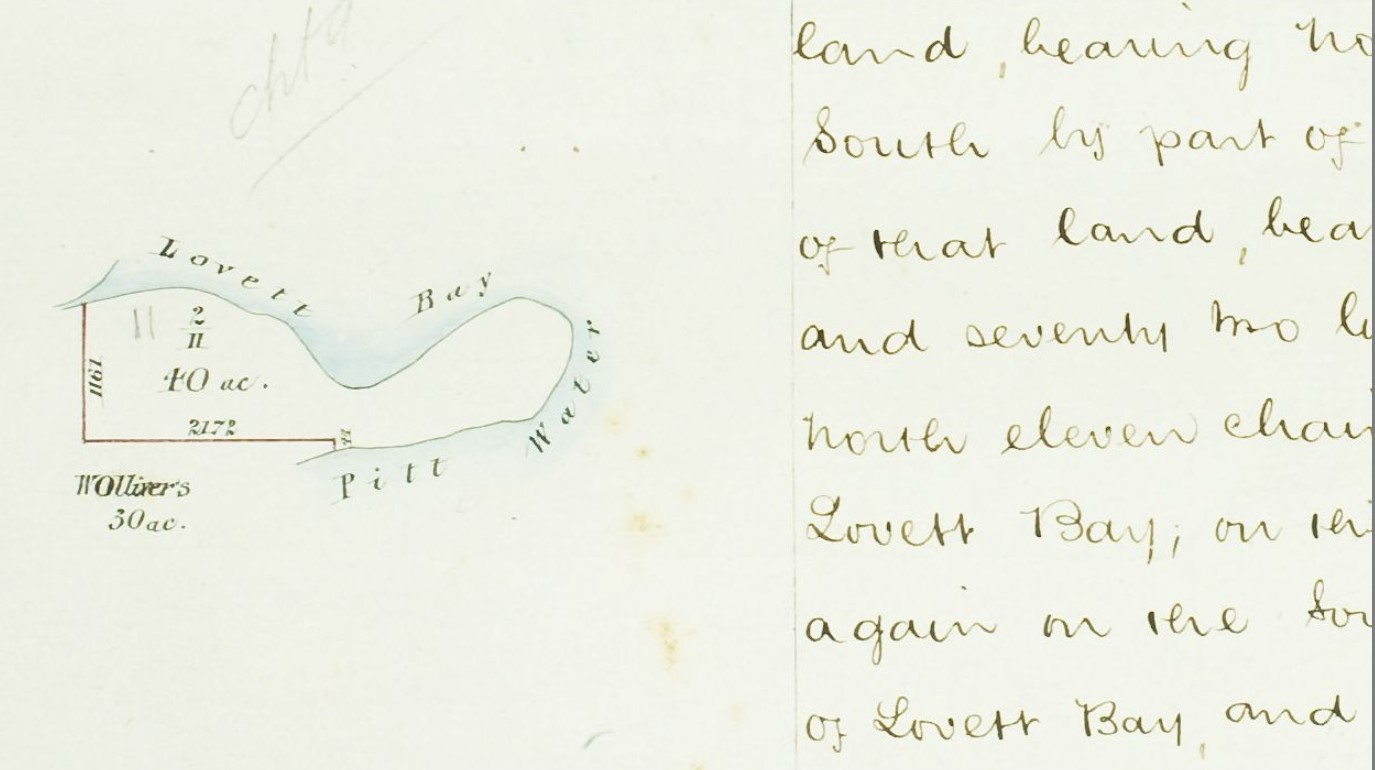 chtd
Lovett Bay
11
2
11
40 ac.
1161
2172
Water
Pitt
W Olliver's
30 ac.
land, bearing no
South by part of
of that land, bea
and seventy two li
North eleven chai
Lovett Bay; on th
again on the Sou
of Lovett Bay, and